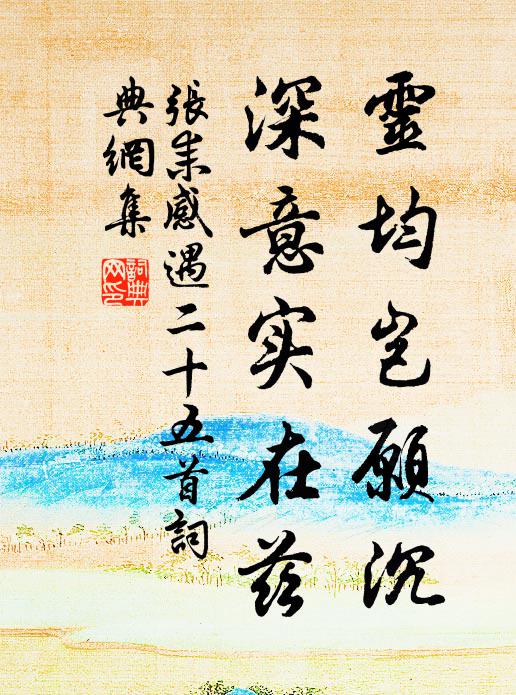 靈均岂願沉
深意实在兹
張耒感遇二十五首詞
典網集
詞典网印